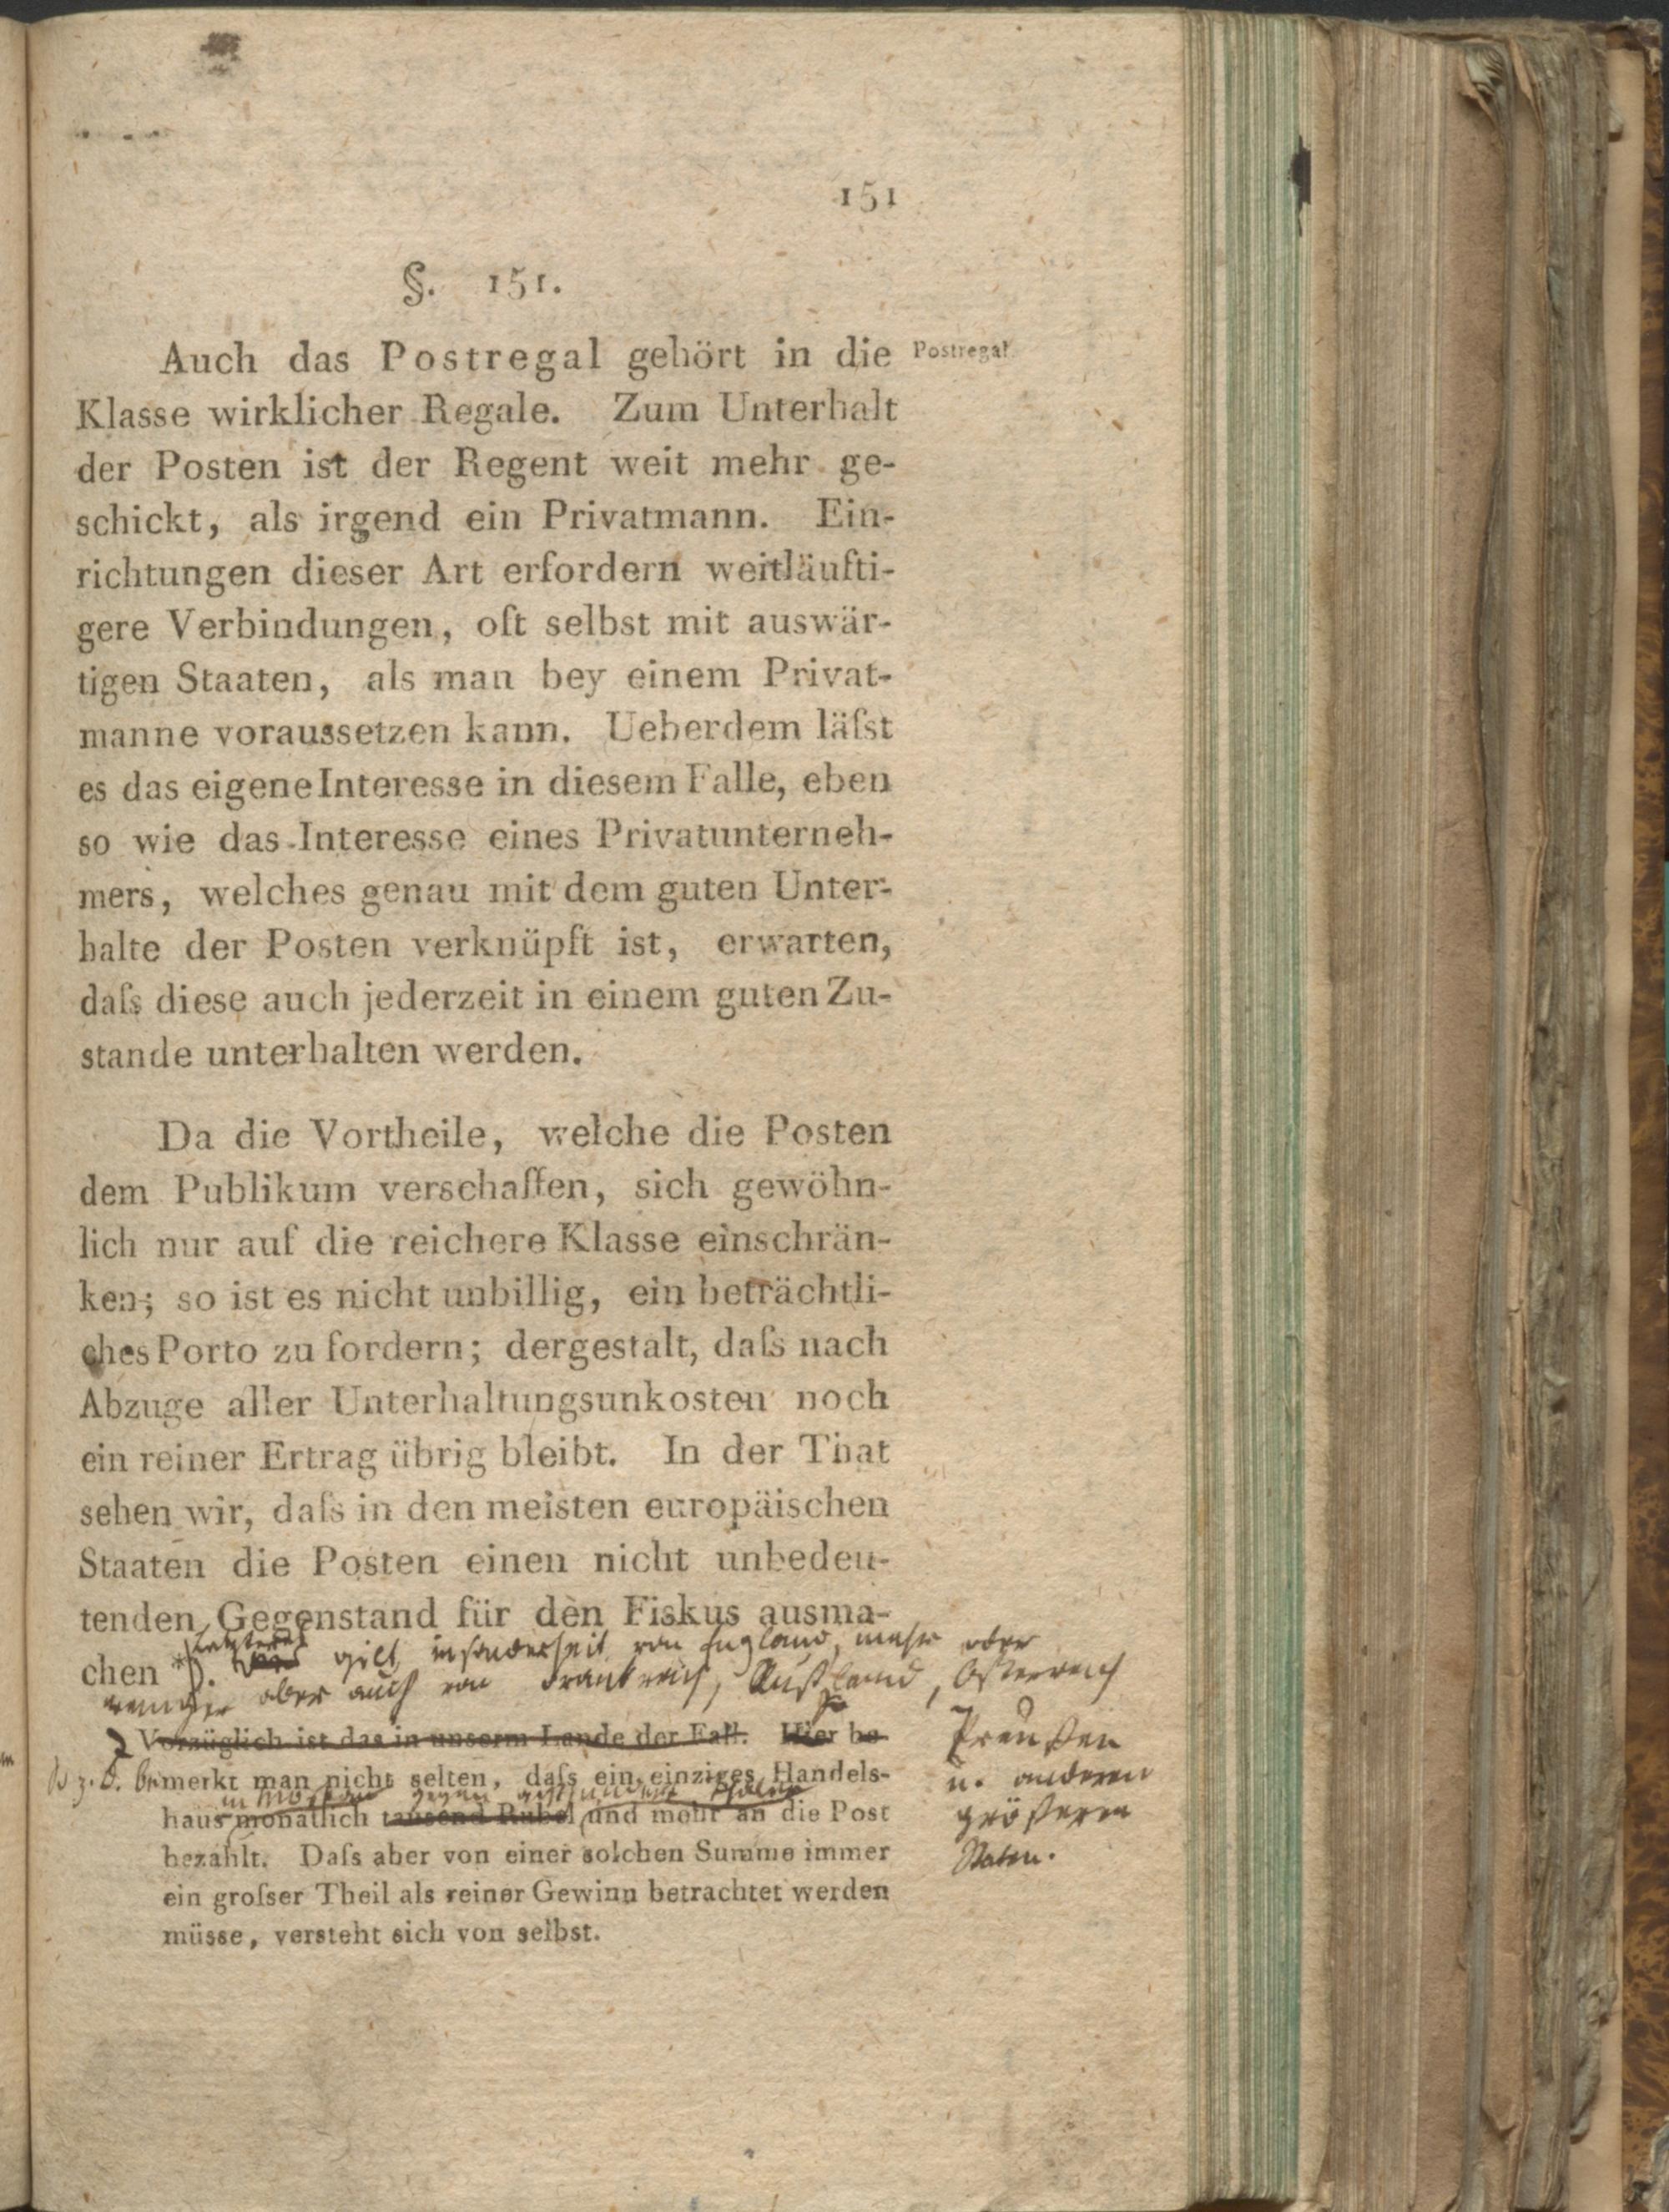 151
§. 151.
Auch das Postregal gehört in die
Postregal.
Klasse wirklicher Regale. Zum Unterhalt
der Posten ist der Regent weit mehr ge-
schickt, als irgend ein Privatmann. Ein-
richtungen dieser Art erfordern weitläufti-
gere Verbindungen, oft selbst mit auswär-
tigen Staaten, als man bey einem Privat-
manne voraussetzen kann. Ueberdem läſst
es das eigene Interesse in diesem Falle, eben
so wie das Interesse eines Privatunterneh-
mers, welches genau mit dem guten Unter-
halte der Posten verknüpft ist, erwarten,
daſs diese auch jederzeit in einem guten Zu-
stande unterhalten werden.
Da die Vortheile, welche die Posten
dem Publikum verschaffen, sich gewöhn-
lich nur auf die reichere Klasse einschrän-
ken; so ist es nicht unbillig, ein beträchtli-
ches Porto zu fordern; dergestalt, daſs nach
Abzuge aller Unterhaltungsunkosten noch
ein reiner Ertrag übrig bleibt. In der That
sehen wir, daſs in den meisten europäischen
Staaten die Posten einen nicht unbedeu-
tenden Gegenstand für den Fiskus ausma-
chen *).
Letzteres gilt insonderheit von England, mehr oder
weniger aber auch von Frankreich, Rußland, Österreich
Preußen
u. anderen
größern
Staten.
Vorzüglich ist das in unserm Lande der Fall. Hier be-
So z. B. bemerkt man nicht selten, daſs ein einziges Handels-
in Moskau gegen achthundert Thaler
haus monatlich tausend Rubel und mehr an die Post
bezahlt. Daſs aber von einer solchen Summe immer
ein groſser Theil als reiner Gewinn betrachtet werden
müsse, versteht sich von selbst.